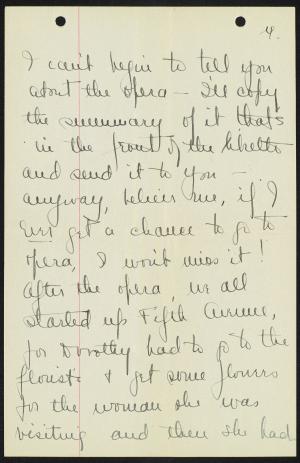 4.
I can't begin to tell you
about the opera – I'll copy
the summary of it that's
in the front of the libretto
and send it to you –
anyway, believe me, if I
ever get a chance to go to
opera, I won't miss it!
After the opera, we all
started up Fifth Avenue,
for Dorothy had to go to the
florists & get some flowers
for the woman she was
visiting and then she had